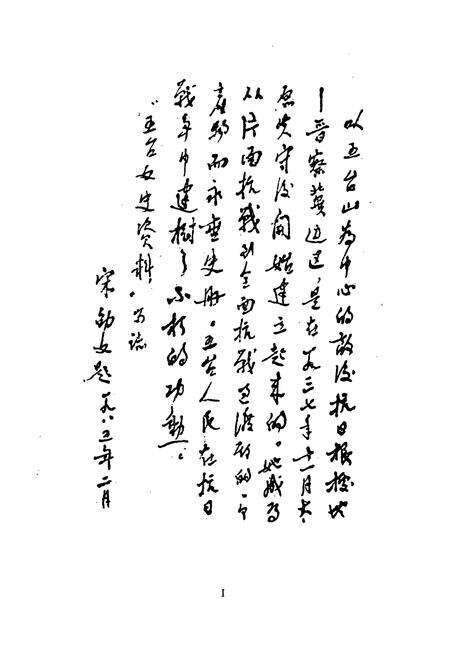 以五台山为中心的敌后抗日根据地
—晋察冀边区，是在一九三七年十一月太
原失守后开始建立起来的。她成为
从片面抗战到全面抗战过渡的
而永垂史册。五台人民在抗日
战争中建树了不朽的功勳。
“五台文史资料”
宋劭文题一九八五年二月
I